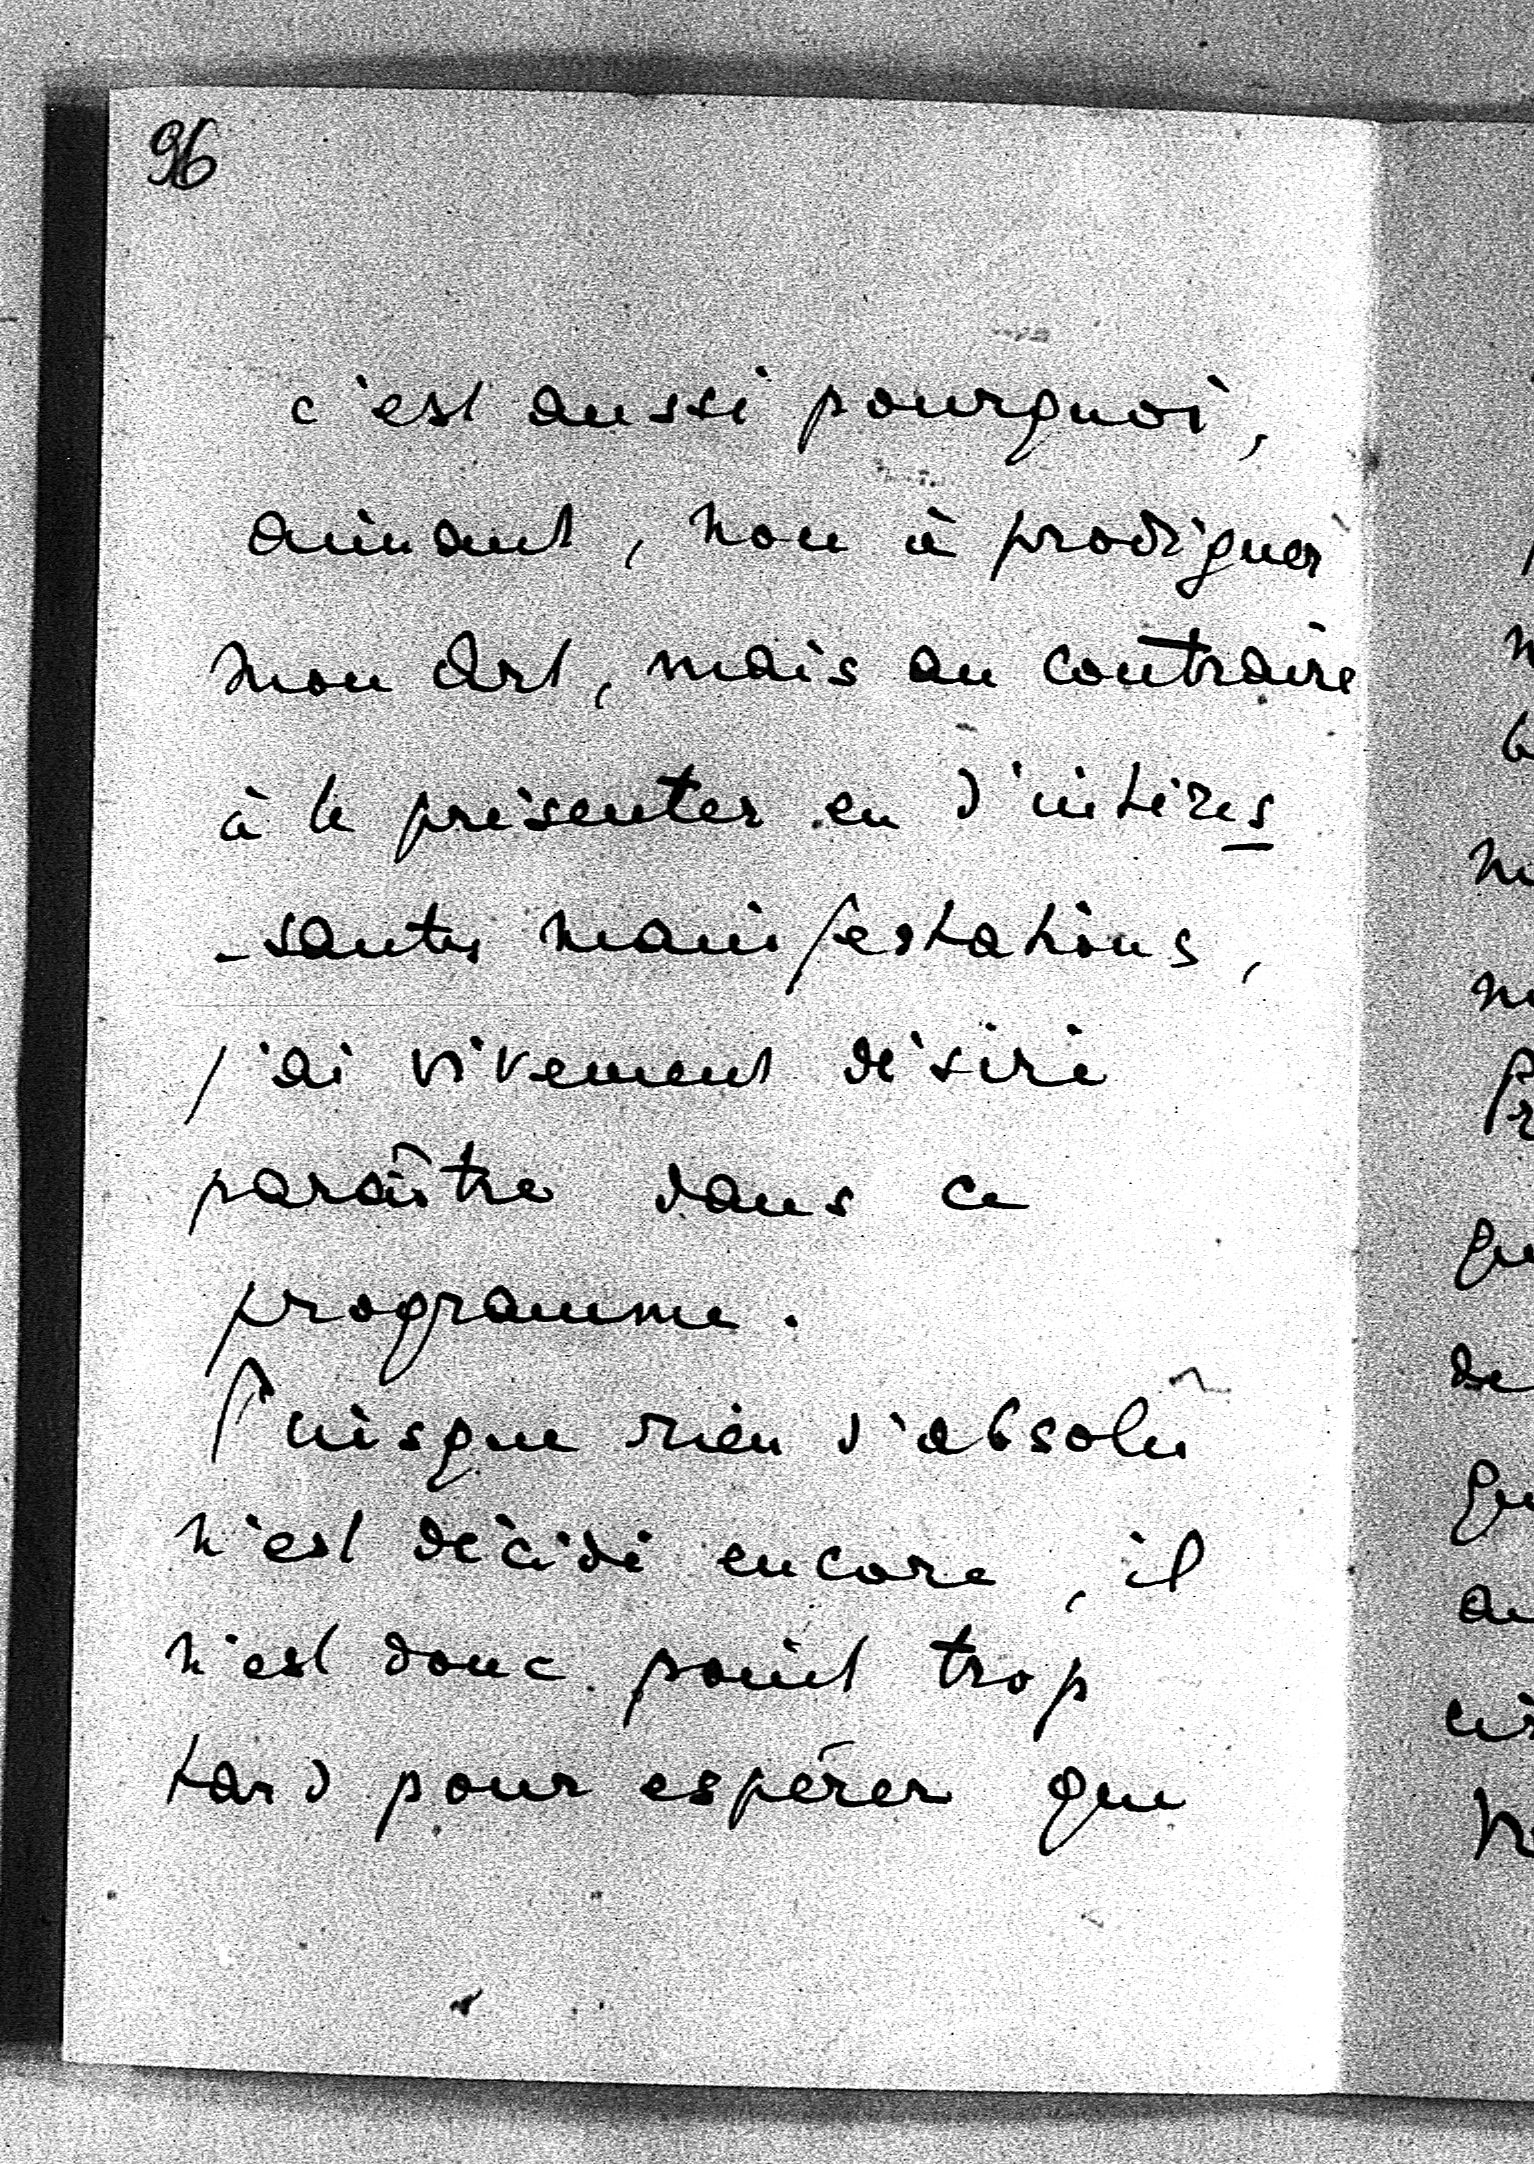 96
c'est aussi pourquoi,
aimant, non à prodiguer
mon Art, mais au contraire
à le présenter en d'intéres
-santes manifestations,
j'ai vivement désiré
paraître dans ce
programme.
Puisque rien d'absolu
n'est décidé encore, il
n'est donc point trop
tard pour espérer que